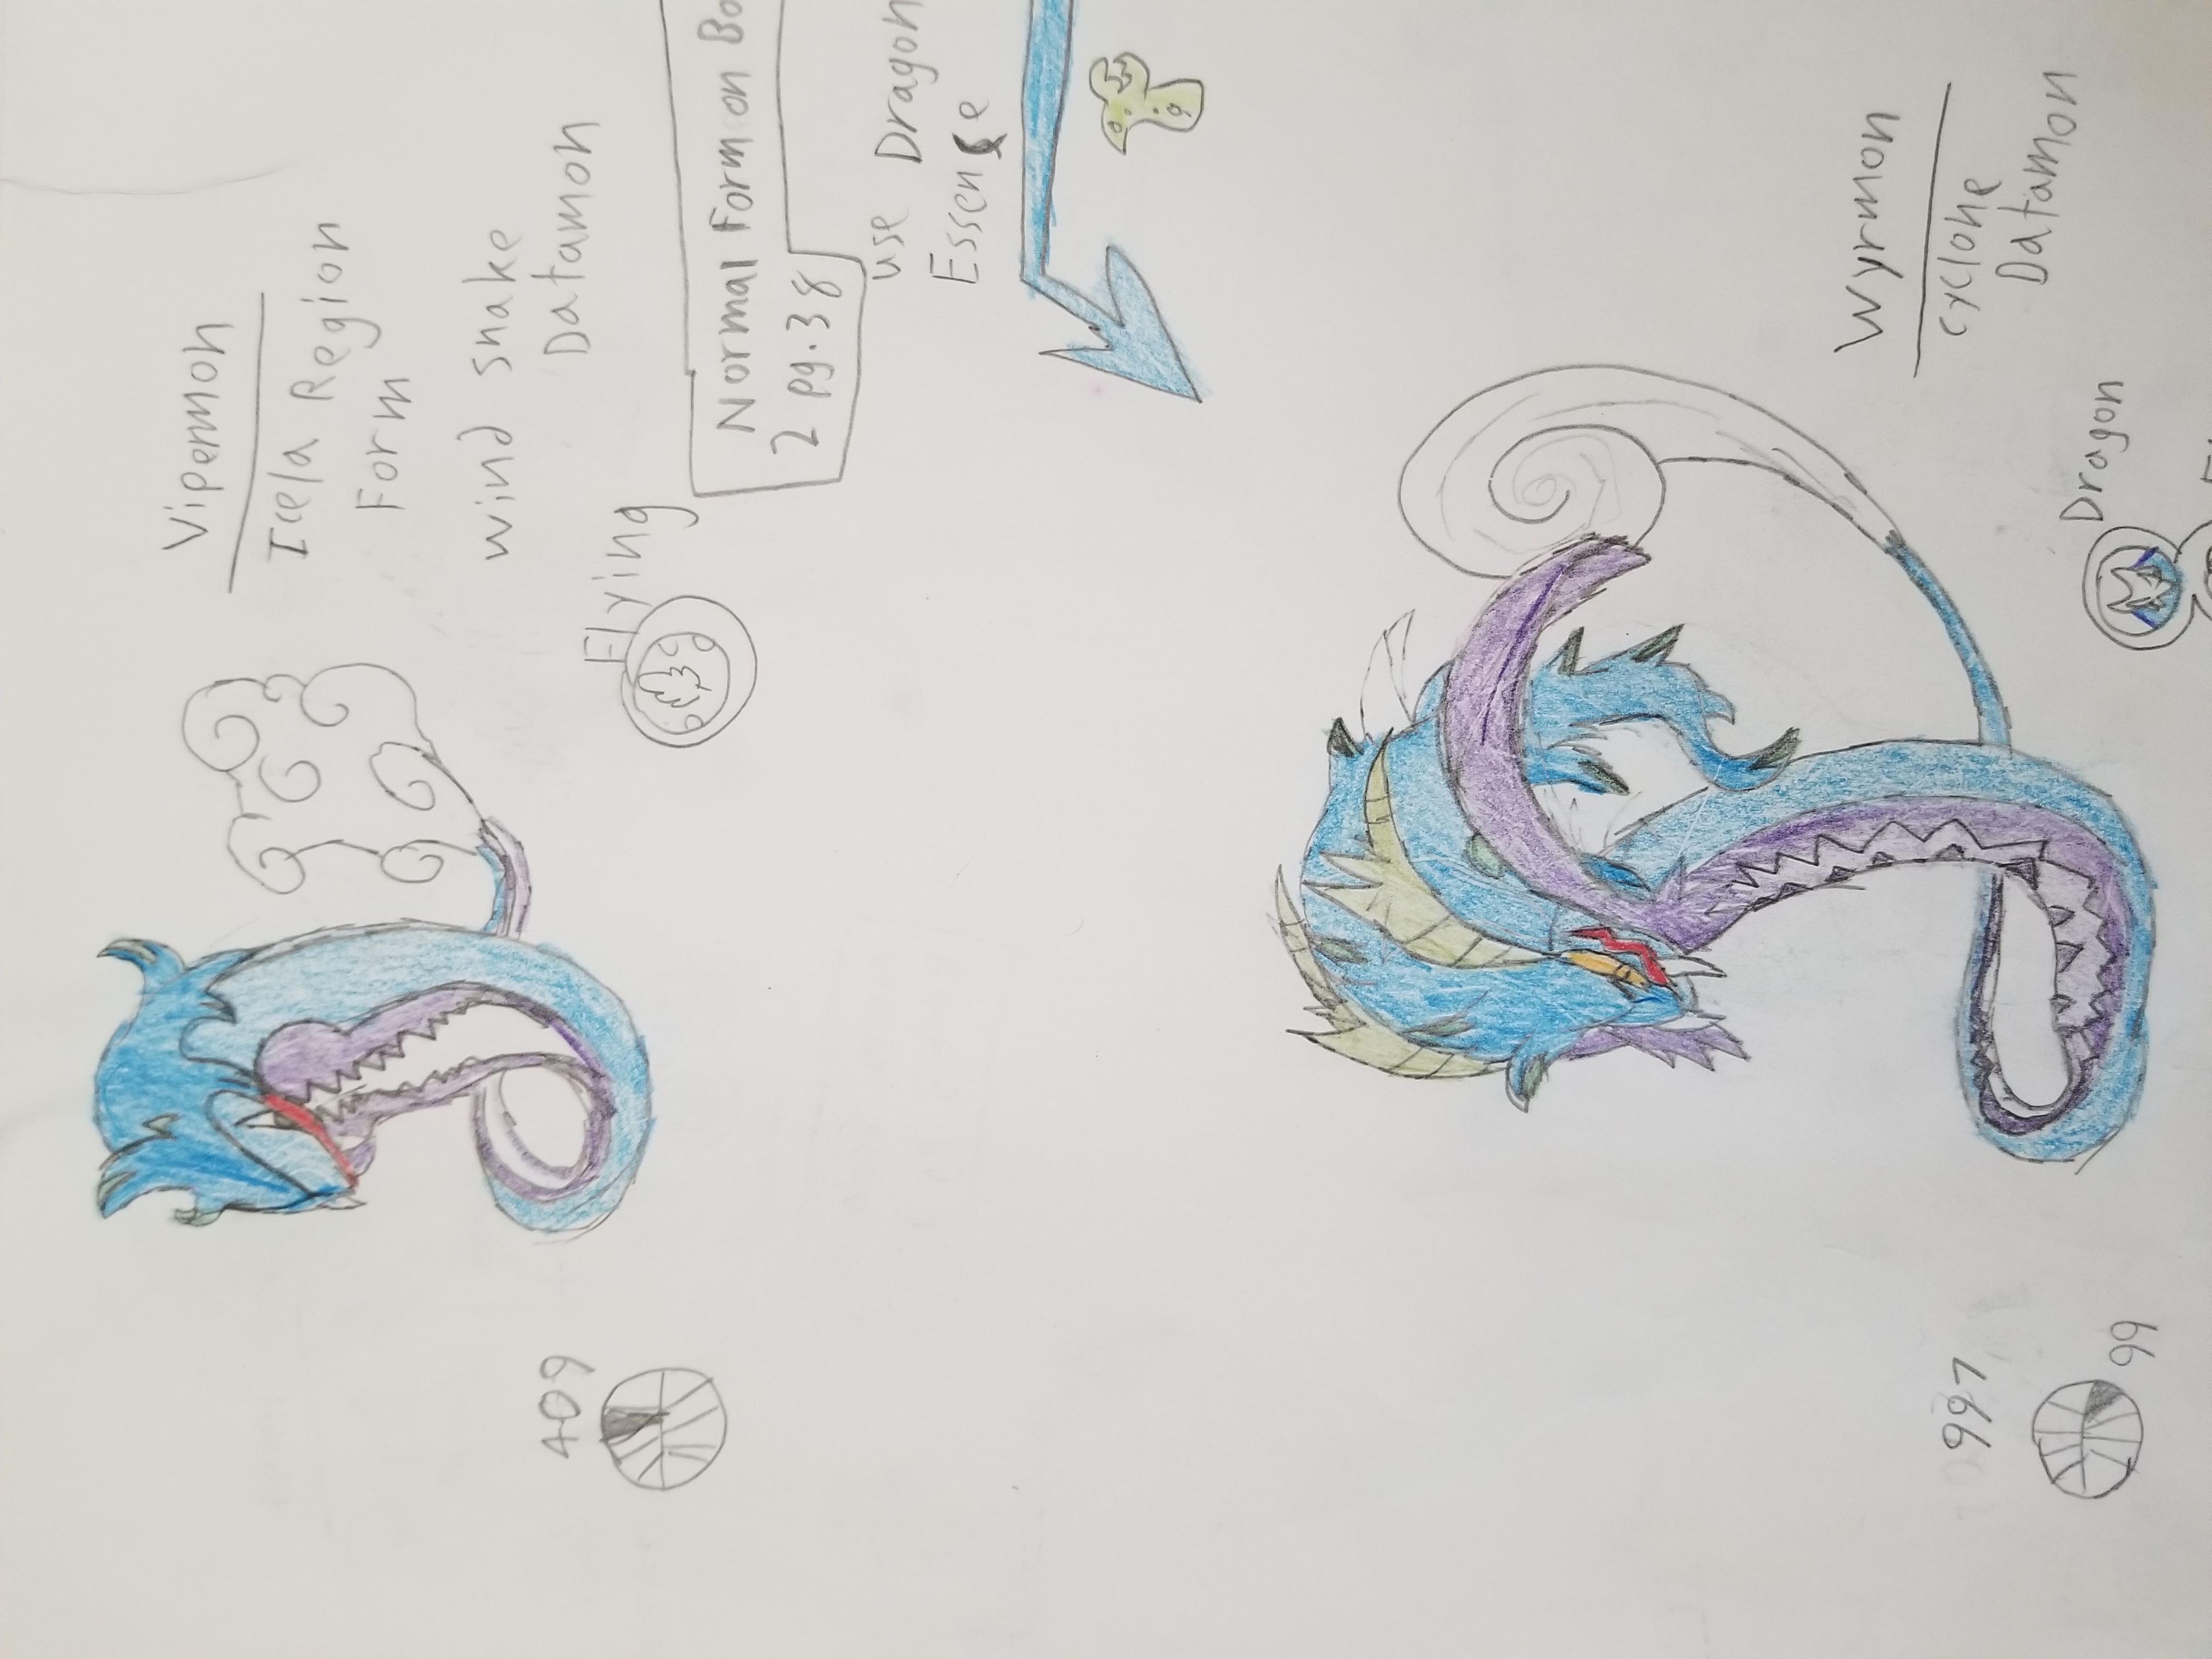 Vipermon
Icela Region
Form
wind snake
Datamon
409
Flying
Normal Form on Bo
2 pg.38
use Dragon
Essence
Wyrmon
cyclone
Datamon
997
99
Dragon